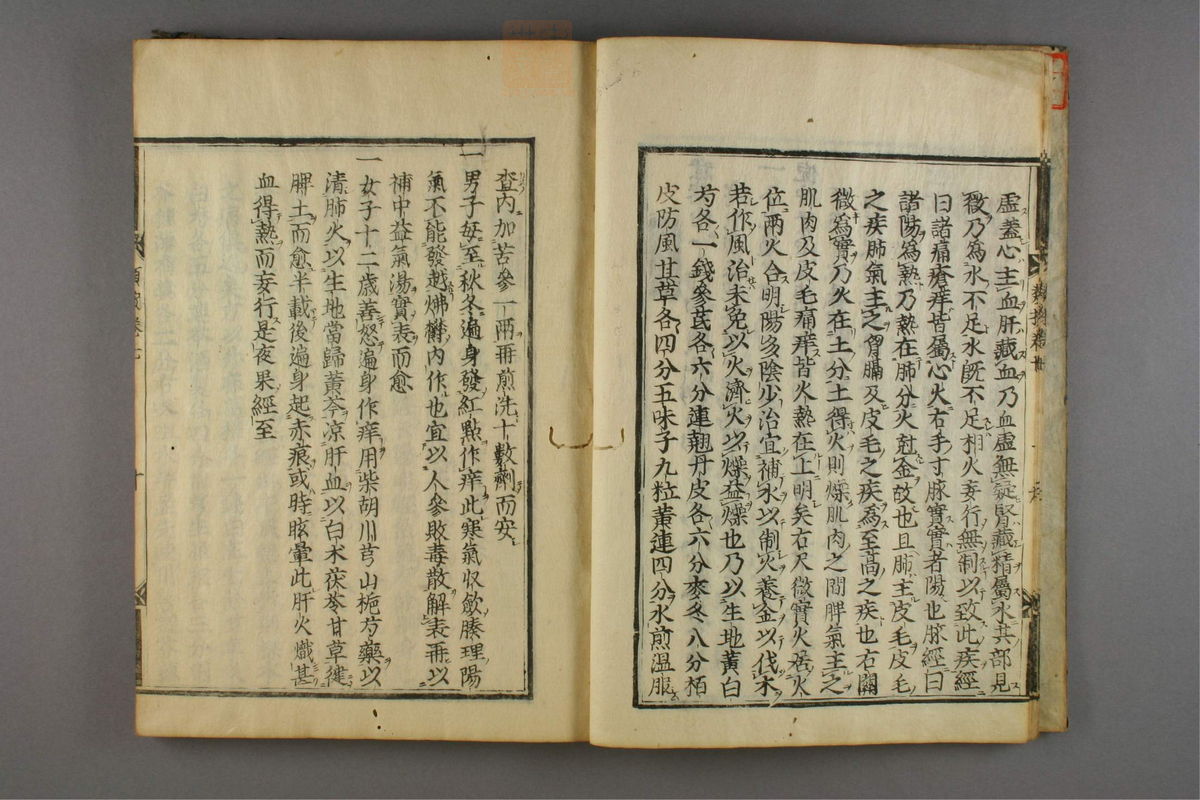 虛蓋心主血肝藏血乃血虛無疑腎藏精屬水其部見
微乃爲水不足水旣不足相火妄行無制以致此疾經
曰諸痛瘡痒皆屬心火右手寸脉實實者陽也脉經曰
諸陽爲熱乃熱在肺分火尅金故也且肺主皮毛皮毛
之疾肺氣主之胷膈及皮毛之疾爲至高之疾也右關
微爲實乃火在土分土得火則燥肌肉之間脾氣主之
肌肉及皮毛痛痒皆火熱在上明矣右尺微實火居火
位兩火合明陽多陰少治宜補水以制火養金以伐木
若作風治未免以火濟火以燥益燥也乃以生地黃白
芍各一錢參芪各六分連翹丹皮各六分麥冬八分栢
皮防風甘草各四分五味子九粒黃連四分水煎温服
查內加苦參一兩再煎洗十數劑而安
一男子每至秋冬遍身發紅點作痒此寒氣収歛腠理陽
氣不能發越怫欝內作也宜以人參敗毒散解表再以
補中益氣湯實表而愈
一女子十二歲善怒遍身作痒用柴胡川芎山梔芍藥以
淸肺火以生地當歸黃芩凉肝血以白术茯苓甘草健
脾土而愈半載後遍身起赤痕或時眩暈此肝火熾甚
血得熱而妄行是夜果經至